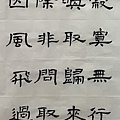 寂寞無行
喚取歸來
除非問取
因風飛過